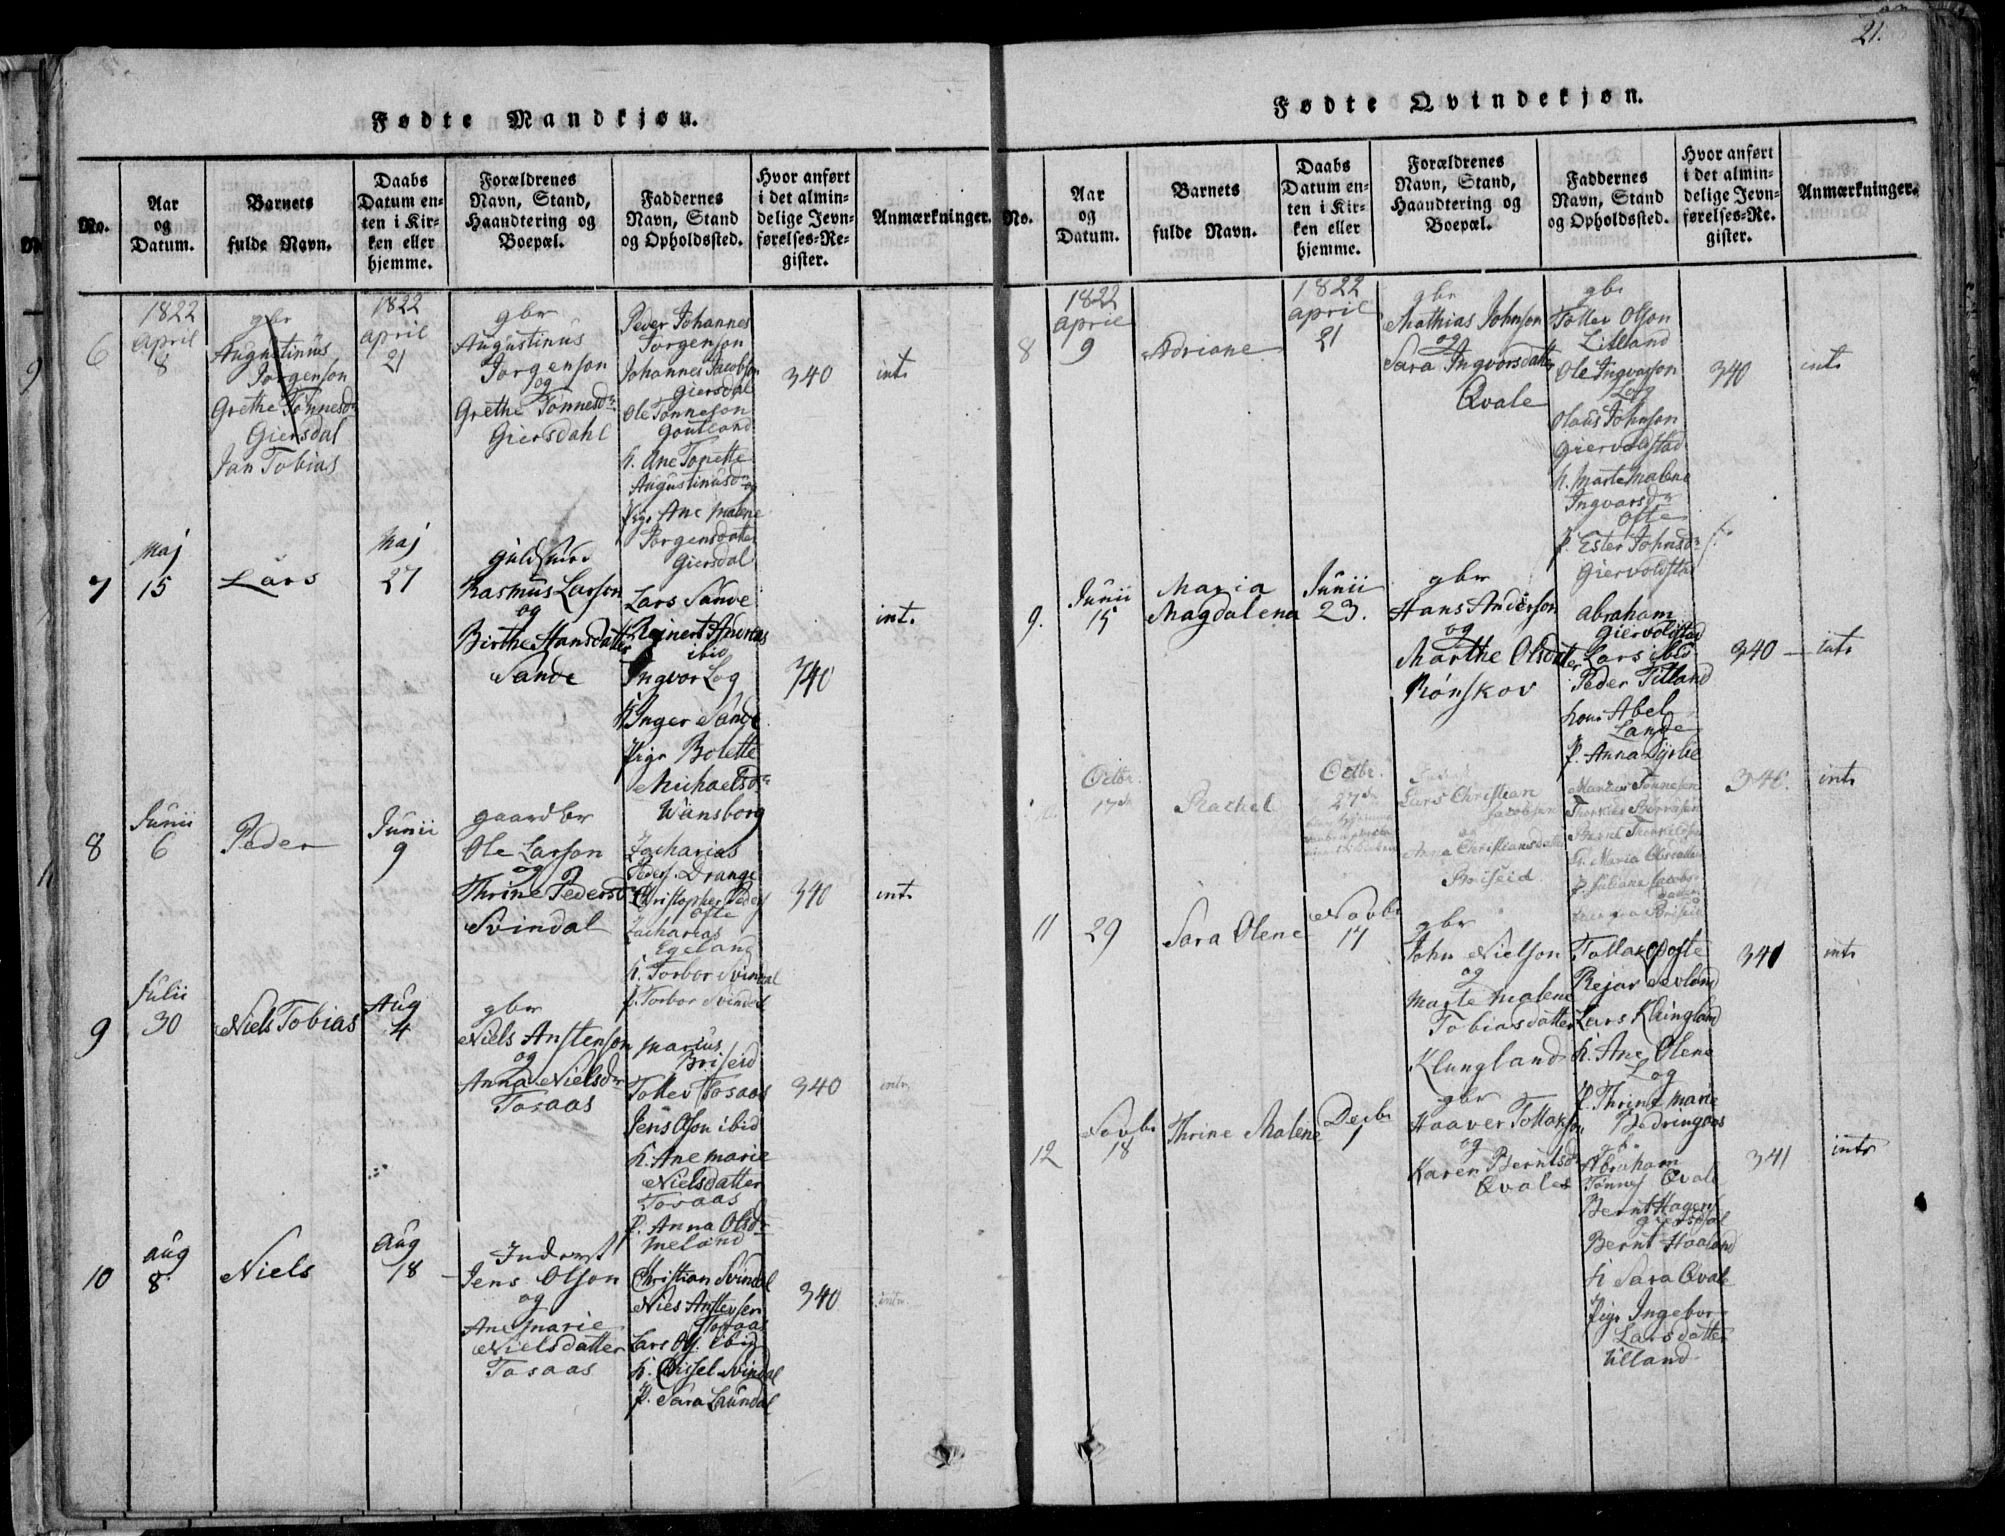 21.
Fødte Mandkjøn.
No.
Aar
og
Datum.
Barnets
fulde Navn.
Daabs
Datum en-
ten i Kir-
ken eller
hjemme.
Forældrenes
Navn, Stand,
Haandtering og
Boepæl.
Faddernes
Navn, Stand
og Opholdssted.
Hvor anført
i det almin-
delige Jevn-
førelses-Re-
gister.
Anmærkninger.
6
1822
April
8
gbr
Augustinus
Jørgenson
Grethe Tønnesdr
Giersdal
Jan Tobias
1822
April
21
gbr
Augustinus
Jørgenson
og
Grethe Tønnesdr
Giersdahl
Peder Johannes
Jørgenson
Johannes Jacobson
Giersdal
Ole Tønneson
k. Ane Tonette
Augustinusdr og
Pige Ane Malene
Jørgensdatter
Giersdal
340
int.
7
Maj
15
Lars
Maj
27
Guldsmed
Rasmus Larson
og
Birthe Hansdatter
Sande
Lars Sande
Reinert Andreas
ibid
Ingvor Log
k. Inger Sande
Pige Bolette
Michaelsdr
Wansborg
340
int.
8
Junii
6
Peder
Junii
9
gaardbr
Ole Larson
og
Thrine Pedersdr
Svindal
Zacharias
Peders. Drange
Christopher Peders
ofte
Zacharias
Egeland
k. Torbor Svindal
p. Torbor Svindal
340
int.
9
Julii
30
Niels Tobias
Aug
4
gbr
Niels Anstenson
og
Anna Nielsdr
Tosaas
Marcus
Briseid
Tollev Tosaas
Jens Olson ibid
k. Ane Marie
Nielsdatter
Tosaas
p. Anna Olsdr
Meland
340
intr
10
Aug
8
Niels
Aug
18
Inderst
Jens Olson
og
Ane Marie
Nielsdatter
Tosaas
Christian Svindal
Niels Anstensen
Tosaas
Lars Ols. ibid
k. Sissel Svindal
p. Sara Laundal
340
intr.
Fødte Qvindekjøn.
No.
Aar
og
Datum.
Barnets
fulde Navn.
Daabs
Datum en-
ten i Kir-
ken eller
hjemme.
Forældrenes
Navn, Stand,
Haandtering og
Boepæl.
Faddernes
Navn, Stand
og Opholdssted.
Hvor anført
i det almin-
delige Jevn-
førelses-Re-
gister.
Anmærkninger.
8
1822
April
9
Adriane
1822
April
21
gbr
Mathias Johnson
og
Sara Ingvorsdatter
Qvale
gbr
Tollev Olson
Litland
Ole Ingvorson
Log
Olaus Johnson
Giervoldstad
k. Marte Malene
Ingvarsdr
Ofte
p. Ester Johnsdr
Giervoldstad
340
int.
9.
Junii
15
Maria
Magdalena
Junii
23.
gbr
Hans Anderson
og
Marthe Olsdatter
Rønskov
Abraham
Giervoldstad
Lars ibid
Peder Titland
kone Abel
Lande
p. Anna Lyshe
340
intr
Octbr.
17de
Rachel
Octbr.
27de
Lars Christian
Jacobsen
og
Anna Christiansdatter
Briseid
Marcus Tønnesen
k. Maria Olsdatter
p. Juliane Jacobs-
datter
Briseid
340.
intr
11
29
Sara Olene
Novbr
17
gbr
John Nielson
og
Marte Malene
Tobiasdatter
Klungland
Tollak Ofte
Rejar Sevland
Lars Klungland
k. Ane Olene
Log
p. Thrine Marie
Bedringaas
341
intr
12
Novbr
18
Thrine Malene
Decbr
1
gbr
Haaver Tollakson
og
Karen Berntsdr
Qvale
gbr
Abraham
Tønnes Qvale
Bernt Hagens
Giersdal
Bernt Haaland
k Sara Qvale
Pige Ingebor
Larsdatter
Ulland
341
intr